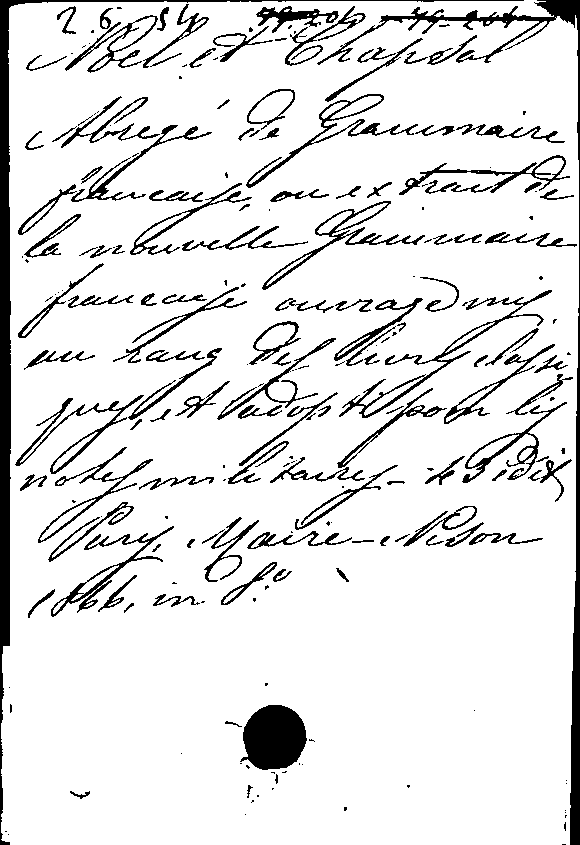 2 6 54 79-204 79-204
Noel et Chapsal
Abregé de Grammaire
francaise, ou extrait de
la nouvelle Grammaire
francaise ouvrage mis
au rang des livres classi
ques, et adopté pour les
notes militaires - 43 edit
Paris, Maire-Nison
1866, in 8.º